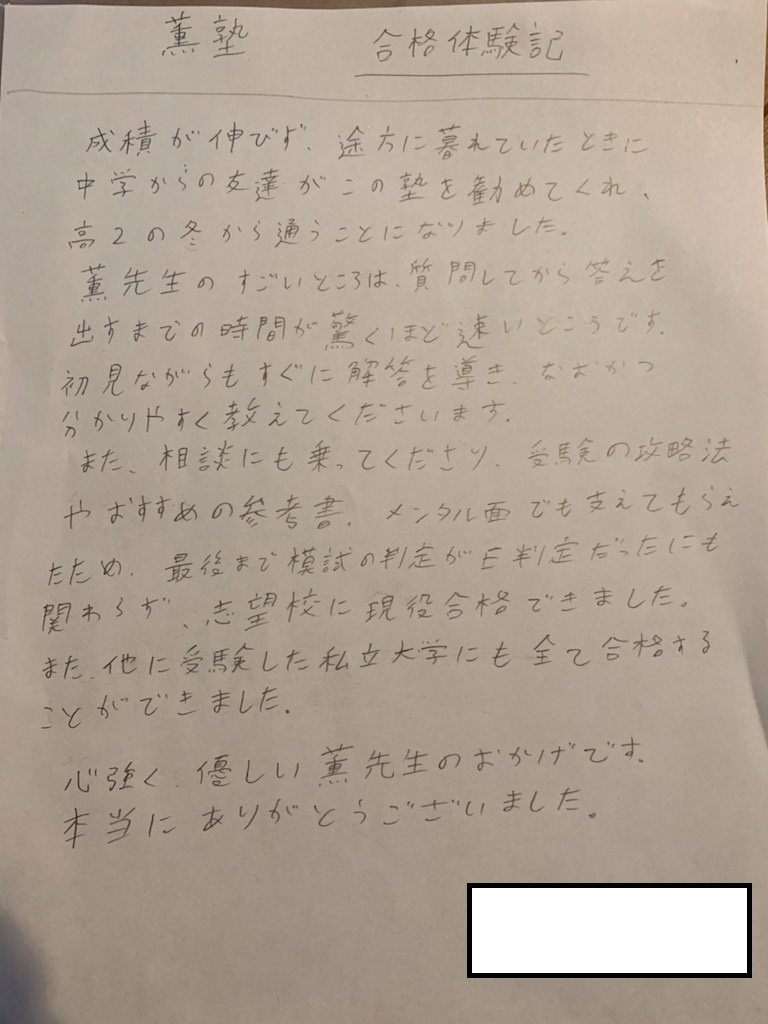 薫塾　合格体験記
成績が伸びず、途方に暮れていたときに
中学からの友達がこの塾を勧めてくれ、
高2の冬から通うことになりました。
薫先生のすごいところは、質問してから答えを
出すまでの時間が驚くほど速いところです。
初見ながらもすぐに解答を導き、なおかつ
分かりやすく教えてくださいます。
また、相談にも乗ってくださり、受験の攻略法
やおすすめの参考書、メンタル面でも支えてもらえ
たため、最後まで模試の判定がE判定だったにも
関わらず、志望校に現役合格できました。
また、他に受験した私立大学にも全て合格する
ことができました。
心強く、優しい薫先生のおかげです。
本当にありがとうございました。